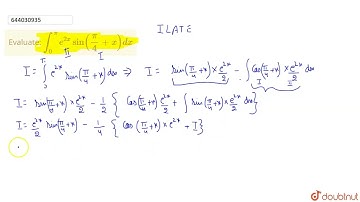 644030935
I L A T E
Evaluate: ∫₀^π e^{2x} sin(π/4 + x) dx
π I
I = ∫₀^π e^{2x} sin(π/4 + x) dx ⇒ I = sin(π/4 + x) × e^{2x}/2 - ∫ cos(π/4 + x) × e^{2x}/2 dx
I II
I = sin(π/4 + x) × e^{2x}/2 - 1/2 { cos(π/4 + x) e^{2x}/2 + ∫ sin(π/4 + x) × e^{2x}/2 dx }
I = e^{2x}/2 sin(π/4 + x) - 1/4 { cos(π/4 + x) × e^{2x} + I }
doubtnut